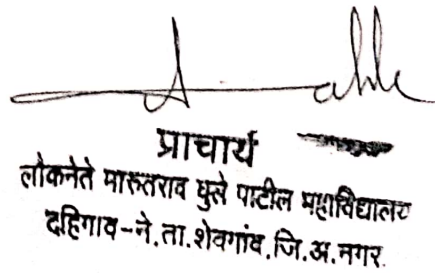 प्राचार्य
लोकनेते मारुतराव घुले पाटील महाविद्यालय
दहिगाव-ने.ता.शेवगांव.जि.अ.नगर.